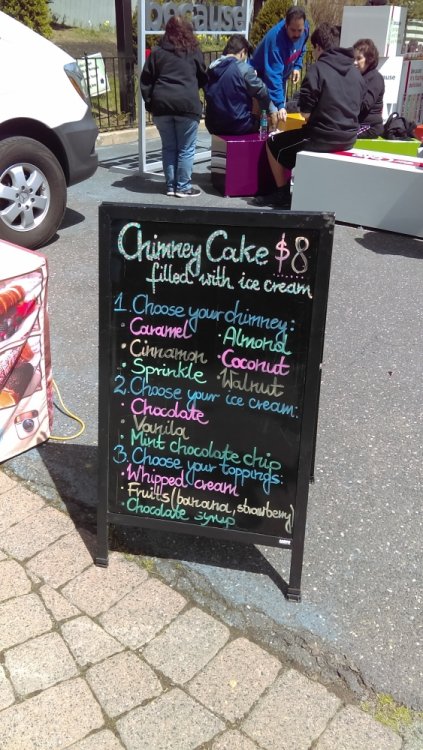 because
Chimney Cake $8
filled with ice cream
1. Choose your chimney:
· Caramel · Almond
· Cinnamon · Coconut
· Sprinkle · Walnut
2. Choose your ice cream:
· Chocolate
· Vanila
· Mint chocolate chip
3. Choose your toppings:
· Whipped cream
· Fruits (banana, strawberry)
· Chocolate syrup